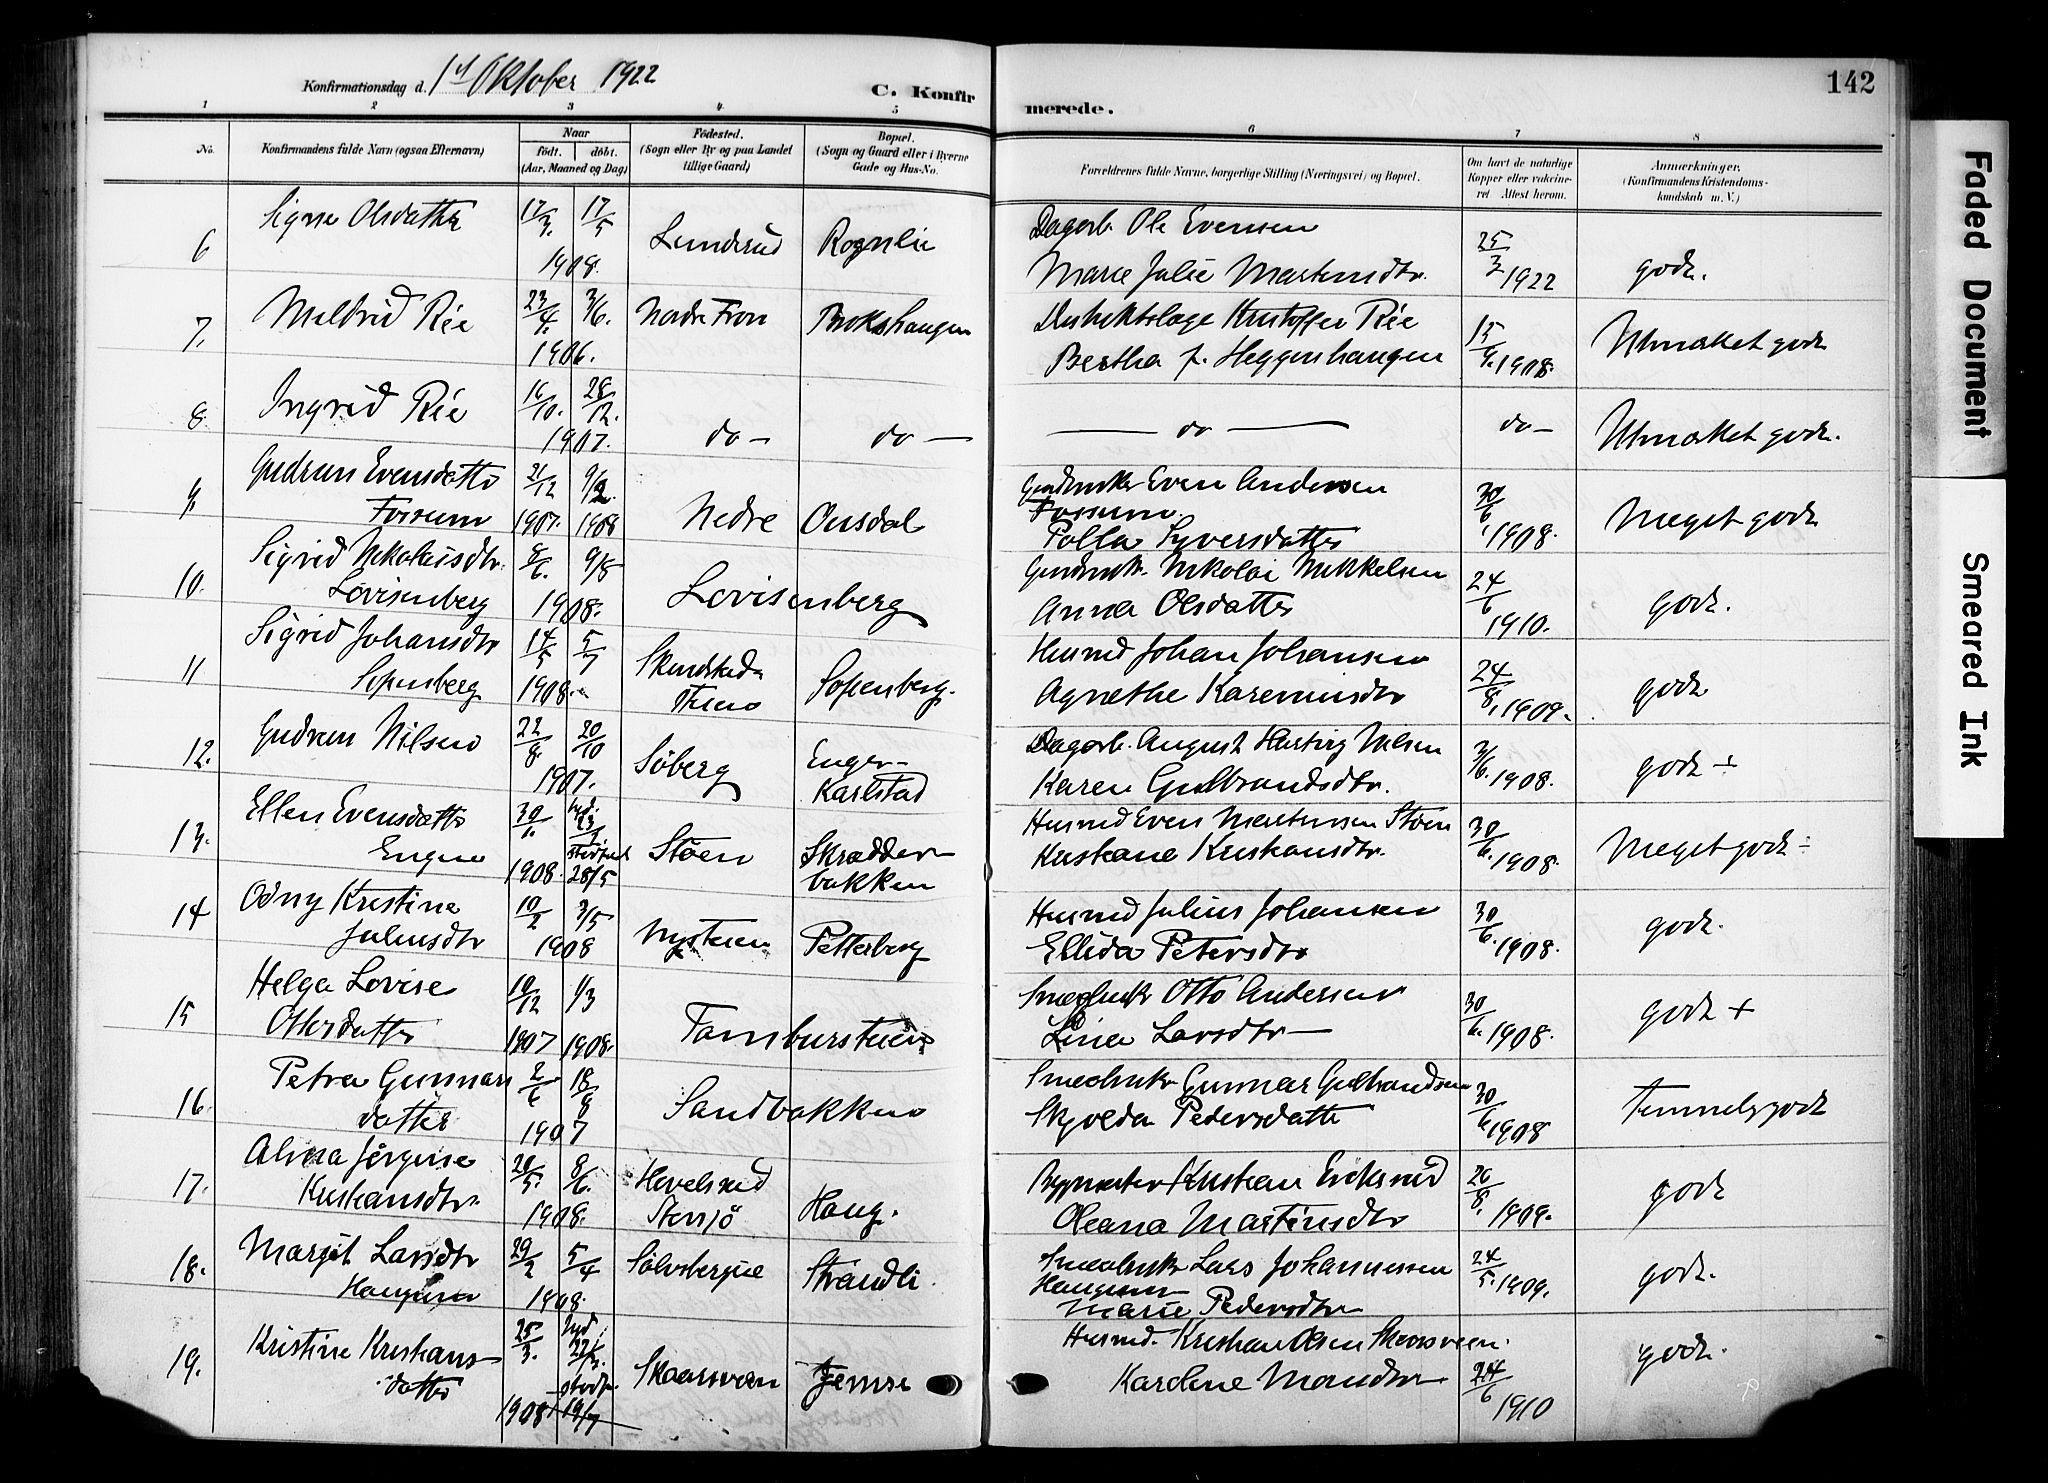 Konfirmationsdag d. 1st Oktober 1922
C. Konfirmerede.
142
1 2 3 4 5 6 7 8
No.
Konfirmandens fulde Navn (ogsaa Efternavn)
Naar
født. døbt.
(Aar, Maaned og Dag)
Fødested.
(Sogn eller By og paa Landet
tillige Gaard)
Bopæl.
(Sogn og Gaard eller i Byerne
Gade og Hus-No.
Forældrenes fulde Navne, borgerlige Stilling (Næringsvei) og Bopæl.
Om havt de naturlige
Kopper eller vakcine-
ret Attest herom.
Anmærkninger.
(Konfirmandens Kristendoms-
kundskab m. V.)
6 Signe Olsdatter 17/3. 17/5 1908. Lunderud Rognlie
Dagarb. Ole Evensen
Marie Julie Martinsdtr. 25/3 1922 godt.
7. Meldrid Rée 23/4. 3/6. 1906. Nordre Fron Brokshaugen
Distriktslæge Kristoffer Rée
Bertha f. Heggenhaugen 15/9. 1908. Utmærket godt
8. Ingrid Rée 16/10. 28/12. 1907. do — do —
— do — do — Utmærket godt.
9. Gudrun Evensdatter
Fossum 21/12 9/2. 1907. 1908 Nedre Onsdal
Gaardbruker Even Andersen
Fossum.
Polla Syversdatter 30/6 1908. Meget godt
10. Sigrid Nikolaisdtr.
Lovisenberg 8/6. 9/8 1908. Lovisenberg
Gaardbruk. Nikolai Mikkelsen
Anna Olsdatter 24/6 1910. godt.
11 Sigrid Johansdtr
Sopenberg 14/5 5/7 1908. Sopenberg.
Husmd Johan Johansen
Agnethe Kareniusdtr 24/8, 1909. godt
12. Gudrun Nilsen 22/8. 20/10 1907. Søberg Enger-
Karlstad
Dagarb. August Hartvig Nilsen
Karen Gulbrandsdtr. 3/6. 1908. godt ÷
13. Ellen Evensdatter
Engen 1908. 28/5 Støen Skrædder-
bakken
Husmd Even Martinsen Støen
Kristiane Kristiansdtr. 30/6. 1908. Meget godt ÷
14 Odny Kristine
Juliusdtr 10/2 3/5 1908 Nystuen Petterberg
Husmd Julius Johansen
Ellida Petersdtr 30/6. 1908. godt.
15 Helga Lovise
Ottersdatter 10/12 1/3 1907 1908. Tamburstuen
Smedbruk Otto Andersen
Lina Larsdtr — 30/6. 1908. godt +
16. Petra Gunnars
datter 2/6 18/8 1907 Sandbakken
Smedbruk Gunnar Gulbrandsen
Skyolda Pedersdatter 30/6 1908 Temmelig godt
17. Alvina Jørgine
Kristiansdtr. 20/5. 8/6. 1908. Hovelsrud
Stensjö Haug.
Bygmester Kristian Eriksrud
Oleana Martinsdtr 26/8. 1909. godt
18. Margit Larsdtr
Haugeren 29/2 5/4 1908. Sölvsbergne Strandli.
Smedbruk Lars Johannessen
Haugeren
Marie Pedersdtr 24/5. 1909. godt.
19. Kristine Kristians-
datter 25/3. 22/3. 1908 19/7 Skaarsveen Jemse
Husmd. Kristian Olsen Skaarsveen.
Karoline 24/6 1910 godt.
Faded Document
Smeared Ink